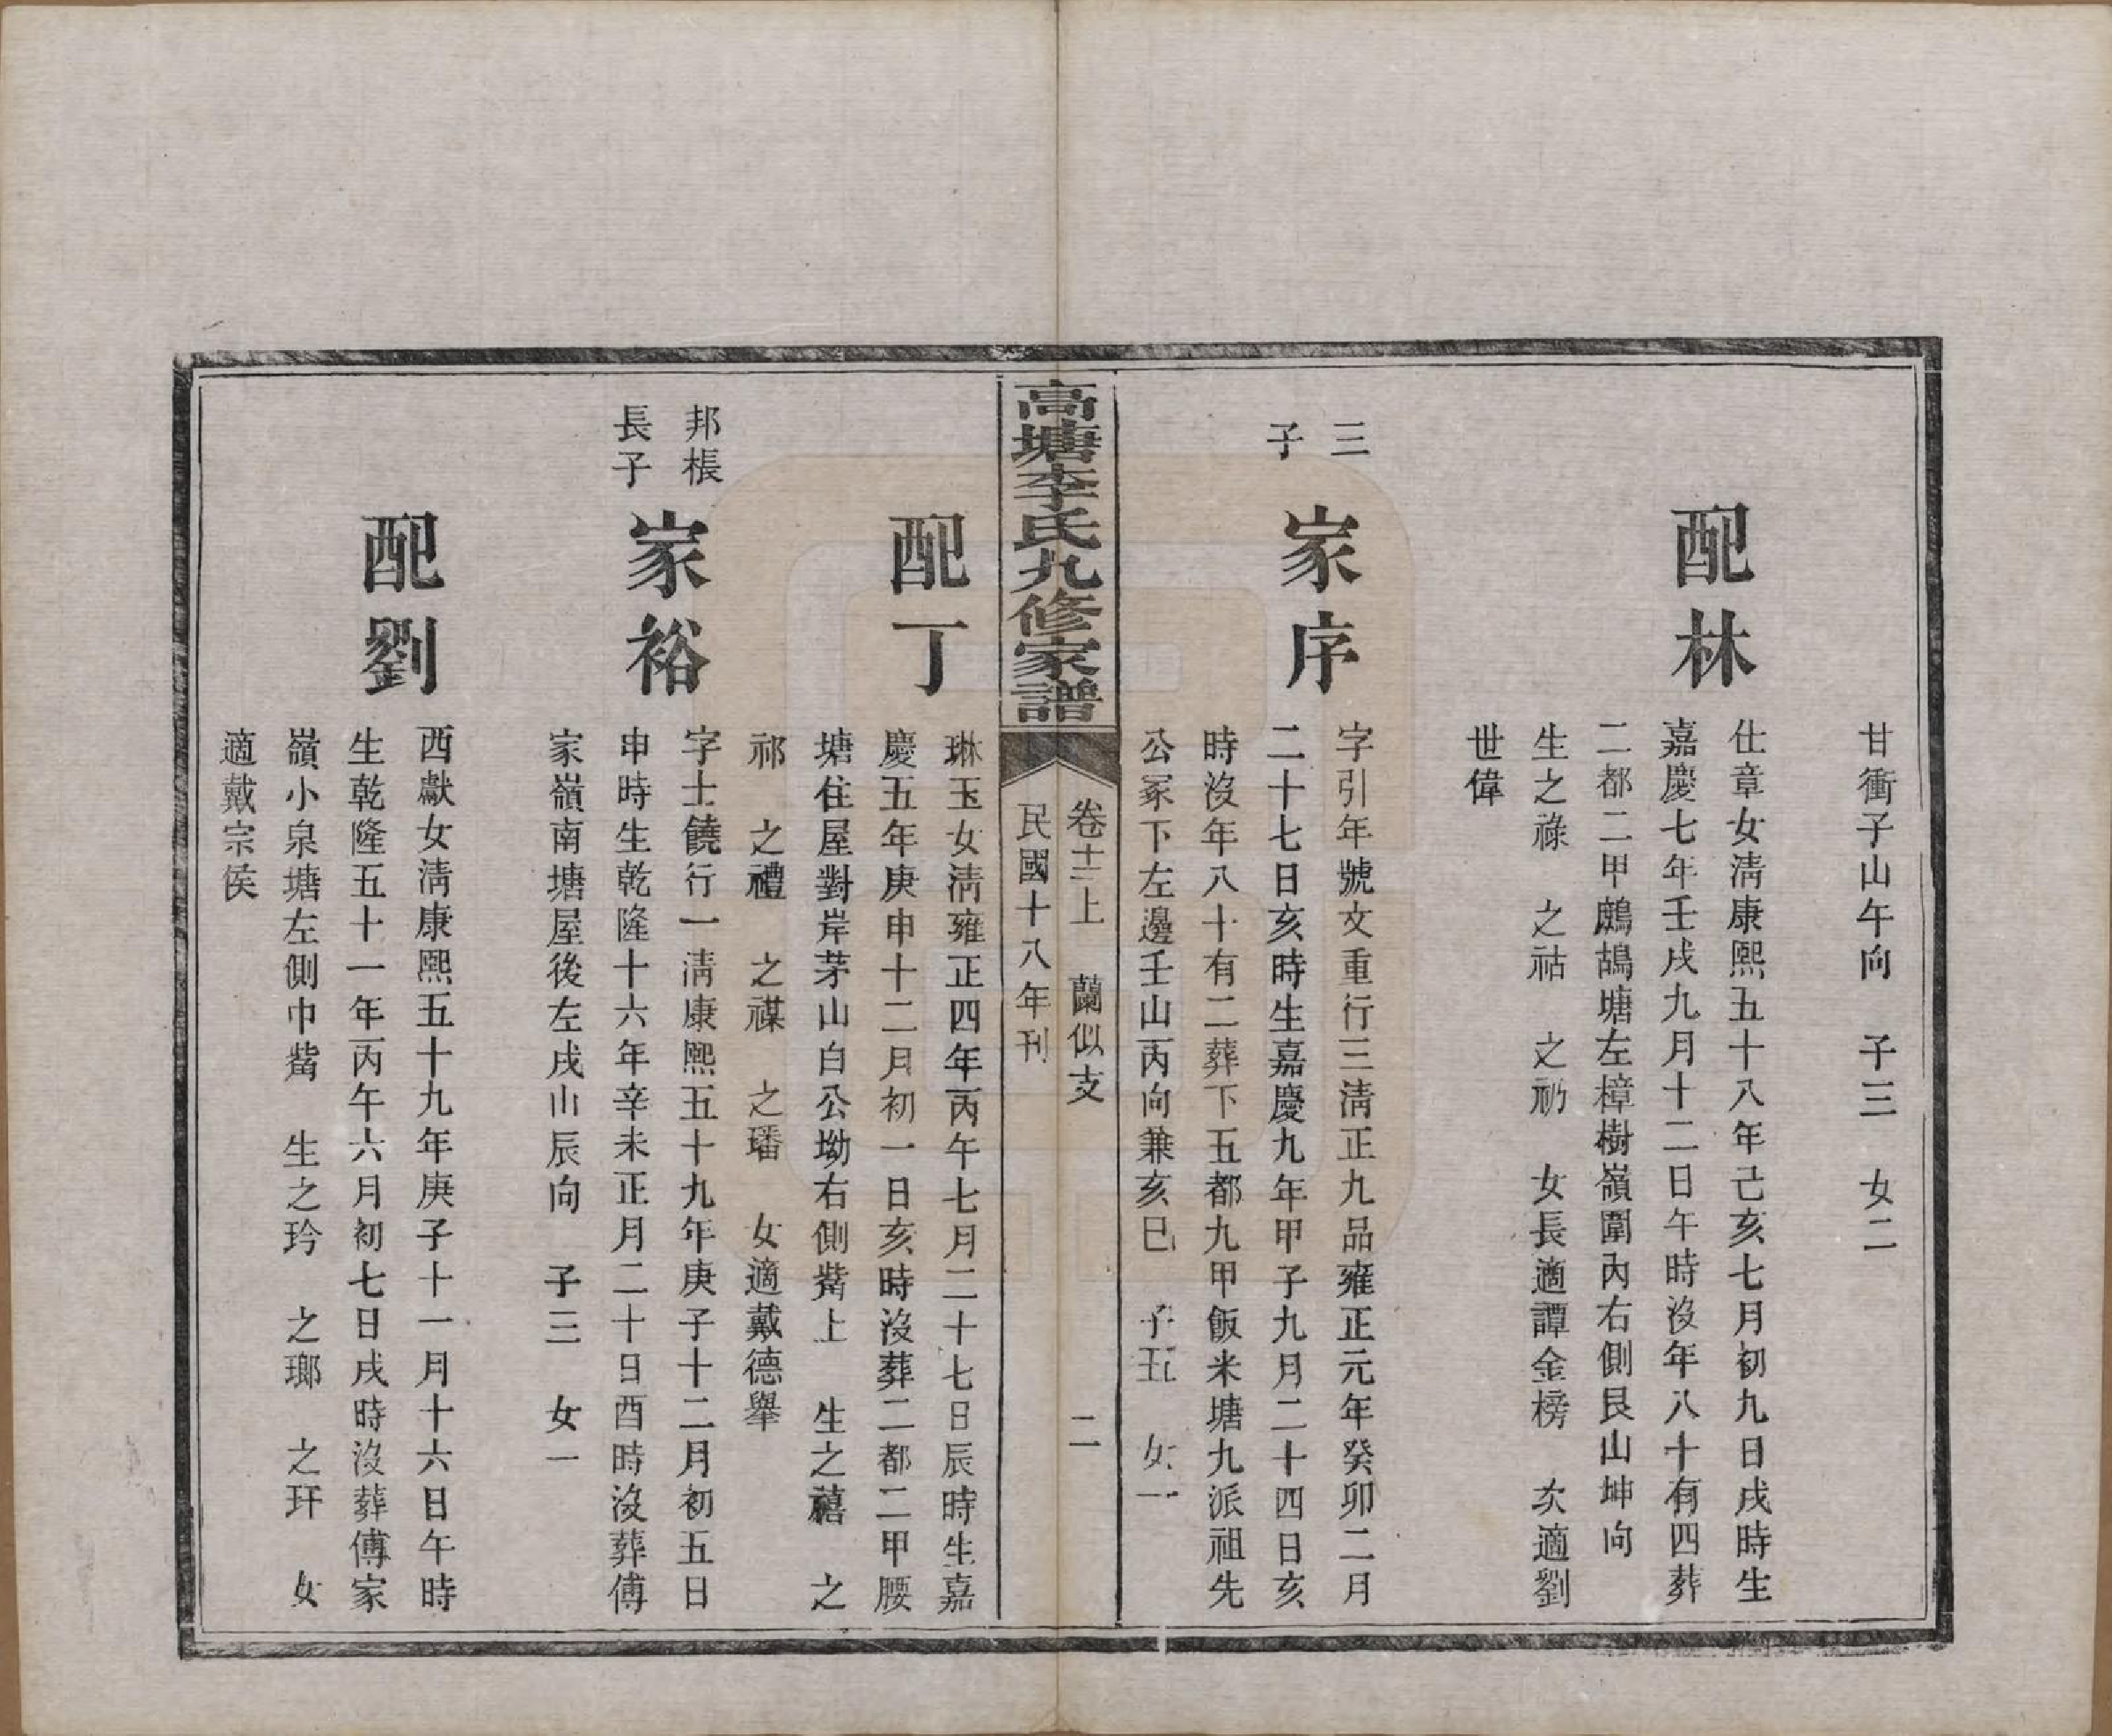 甘衝子山午向　子三　女二
配林
仕章女淸康熙五十八年己亥七月初九日戌時生
嘉慶七年壬戌九月十二日午時沒年八十有四葬
二都二甲鷓鴣塘左樟樹嶺圍內右側艮山坤向
生之祿　之祜　之礽　女長適譚金榜　次適劉
世偉
三
子
家序
字引年號文重行三淸正九品雍正元年癸卯二月
二十七日亥時生嘉慶九年甲子九月二十四日亥
時沒年八十有二葬下五都九甲飯米塘九派祖先
公冢下左邊壬山丙向兼亥巳　子五　女一
高塘李氏九修家譜
卷十三上　蘭似支　二
民國十八年刊
配丁
琳玉女淸雍正四年丙午七月二十七日辰時生嘉
慶五年庚申十二月初一日亥時沒葬二都二甲腰
塘住屋對岸茅山白公坳右側觜上　生之禧　之
祁　之禮　之禖　之璠　女適戴德舉
邦棖
長子
家裕
字士饒行一淸康熙五十九年庚子十二月初五日
申時生乾隆十六年辛未正月二十日酉時沒葬傅
家嶺南塘屋後左戌山辰向　子三　女一
配劉
西獻女淸康熙五十九年庚子十一月十六日午時
生乾隆五十一年丙午六月初七日戌時沒葬傅家
嶺小泉塘左側巾觜　生之玪　之瑯　之玕　女
適戴宗侯